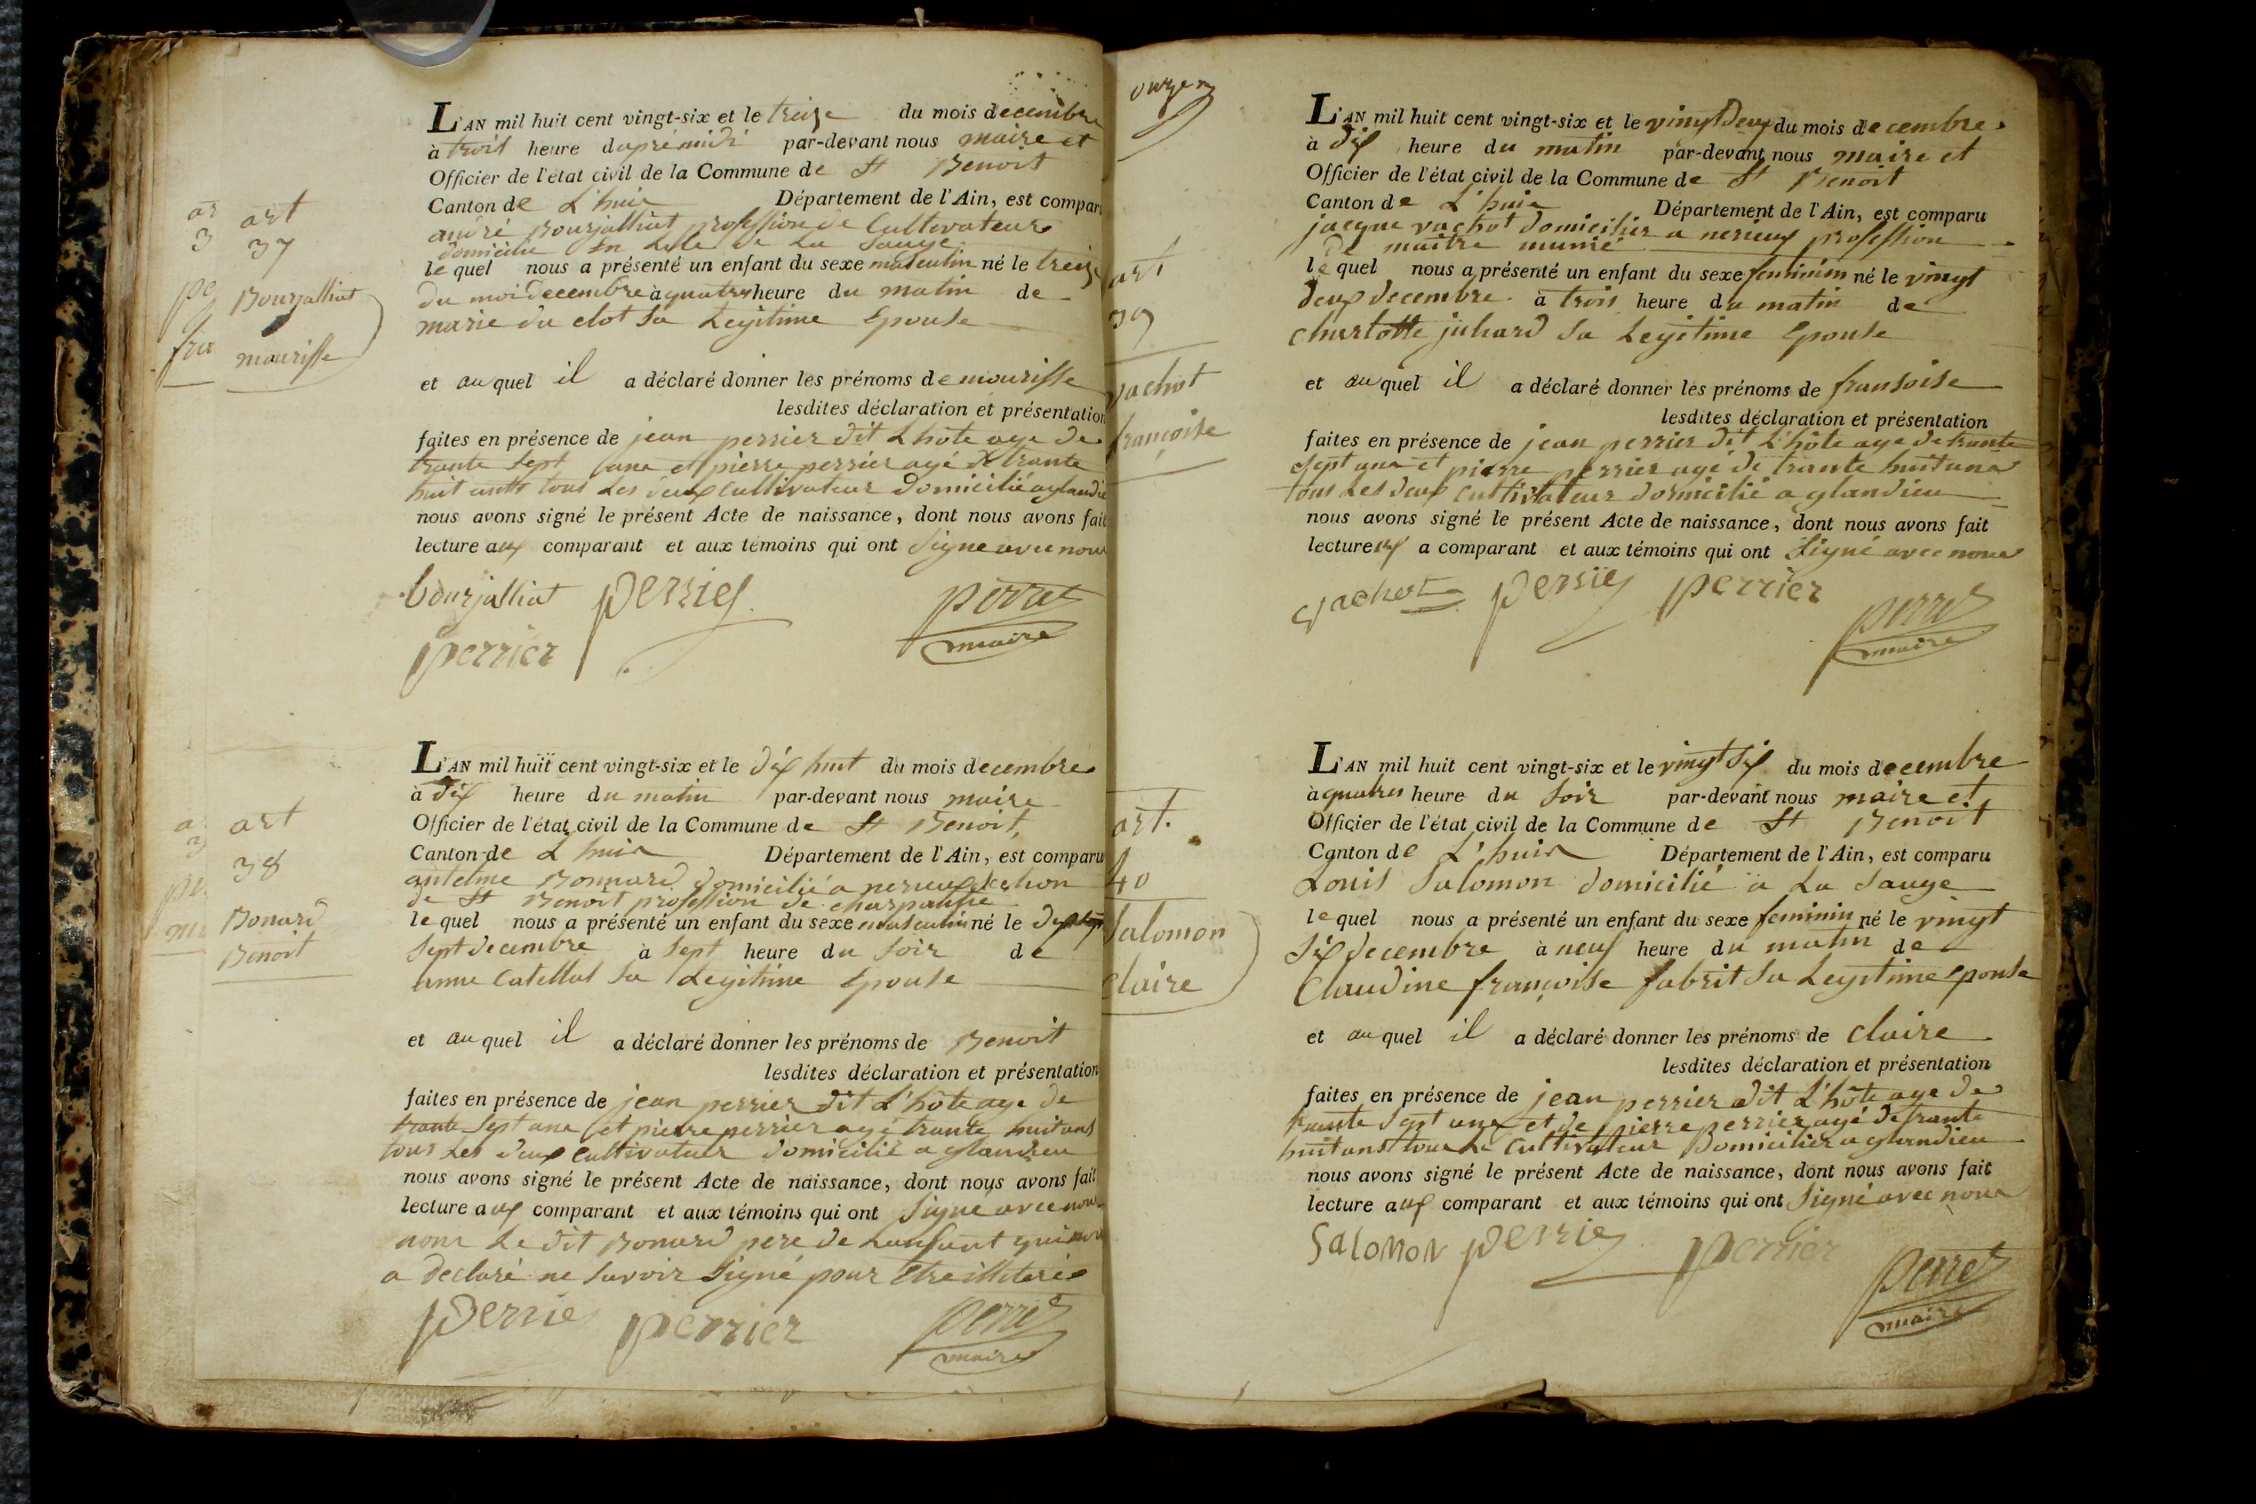 art
37
Bourjalliat
mourisse
L'AN mil huit cent vingt-six et le treize du mois decembre
à trois heure duprémidi par-devant nous maire et
Officier de l'état civil de la Commune de St Benoit
Canton de L'huis Département de l'Ain, est comparu
andré Bourjalliat profession de Cultivateur
domicilie en Lile de La Sauge
le quel nous a présenté un enfant du sexe masculin né le treize
du moi decembre à quatres heure du matin de
marie du clot Sa Legitime Epouse
et au quel il a déclaré donner les prénoms de mourisse
lesdites déclaration et présentation
faites en présence de jean perrier dit L'hôte age de
trante Sept ans et pierre perrier agé de trante
huit ants tous Les deux cultivateur Domicilié a glandie
nous avons signé le présent Acte de naissance, dont nous avons fait
lecture aux comparant et aux témoins qui ont Signe avec nous
bourjalliat perrier perret
maire
perrier
art
38
Bonard
Benoit
L'AN mil huit cent vingt-six et le dix huit du mois decembre
à dix heure du matin par-devant nous maire
Officier de l'état civil de la Commune de St Benoit
Canton de L'huis Département de l'Ain, est comparu
antelme Bonnard domicilié a nerieux
de St Benoit profession de charpantie
le quel nous a présenté un enfant du sexe masculin né le
Sept decembre à Sept heure du Soir de
anne Catellas Sa Legitime Epouse
et au quel il a déclaré donner les prénoms de Benoit
lesdites déclaration et présentation
faites en présence de jean perrier dit L'hôte age de
trante Sept ans et pierre perrier agé trante huit ans
tous Les deux Cultivateur domicilié a glandieu
nous avons signé le présent Acte de naissance, dont nous avons fait
lecture aux comparant et aux témoins qui ont Signe avec nous
non Le dit Bonard pere de Lanfant qui nous
a declaré ne Savoir Signé pour Etre illiteré
perrie perrier perret
maire
onze
art
39
vachot
françoise
L'AN mil huit cent vingt-six et le vingt deux du mois decembre
à dix heure du matin par-devant nous maire et
Officier de l'état civil de la Commune de St Benoit
Canton de L'huis Département de l'Ain, est comparu
jacque vachot domicilier a nerieux profession
de maitre
le quel nous a présenté un enfant du sexe feminim né le vingt
deux decembre à trois heure du matin de
Charlotte juhard Sa Legitime Epouse
et au quel il a déclaré donner les prénoms de fransoise
lesdites déclaration et présentation
faites en présence de jean perrier dit L'hôte age de trante
Sept ans et pierre perrier agé de trante huit ans
tous Les deux cultivateur domicilié a glandieu
nous avons signé le présent Acte de naissance, dont nous avons fait
lecture aux a comparant et aux témoins qui ont Signé avec nous
vachot perrier perrier
perret
maire
art.
40
Salomon
Claire
L'AN mil huit cent vingt-six et le vingt Six du mois decembre
à quatres heure du Soir par-devant nous maire et
Officier de l'état civil de la Commune de St Benoit
Canton de L'huis Département de l'Ain, est comparu
Louis Salomon domicilié a La Sauge
le quel nous a présenté un enfant du sexe feminin né le vingt
Six decembre à neuf heure du matin de
Claudine françoise fabrit Sa Legitime Eponse
et au quel il a déclaré donner les prénoms de Claire
lesdites déclaration et présentation
faites en présence de jean perrier dit L'hôte age de
trante Sept ans et de pierre perrier agé de trante
huit ans tous Le Cultivateur Domicilier a glandieu
nous avons signé le présent Acte de naissance, dont nous avons fait
lecture aux comparant et aux témoins qui ont Signé avec nous
Salomon perrier perrier
perret
maire